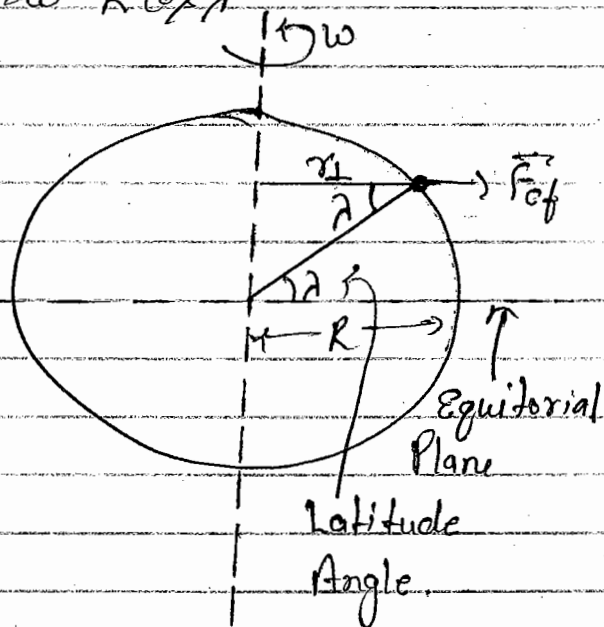 ω
r⊥
F⃗cf
λ
λ
R
Equitorial
Plane
Latitude
Angle.